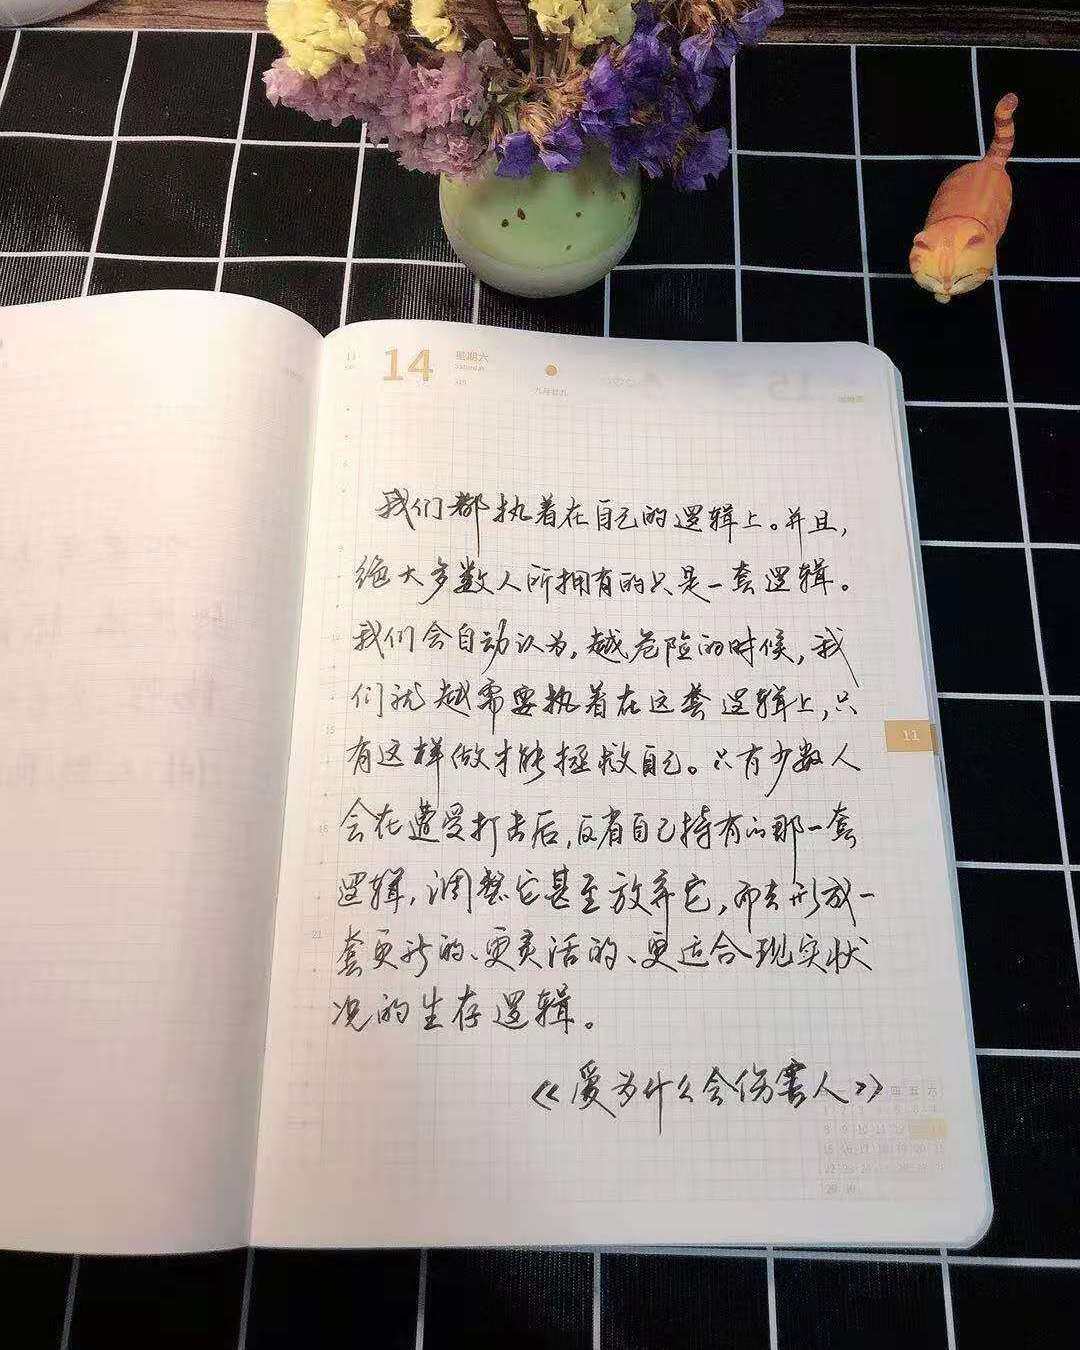 11
14
星期六
Saturday
九月廿九
我们都执着在自己的逻辑上。并且,
绝大多数人所拥有的只是一套逻辑。
我们会自动认为,越危险的时候,我
们就越需要执着在这套逻辑上,只
有这样做才能拯救自己。只有少数人
会在遭受打击后,反省自己持有的那一套
逻辑,调整它甚至放弃它,而去形成一
套更新的、更灵活的、更适合现实状
况的生存逻辑。
《爱为什么会伤害人》
11
9
15
18
21
四 五 六
8 9 10 11 12 13 14
15 16 17 18 19 20 21
22 23 24 25 26 27 28
29 30